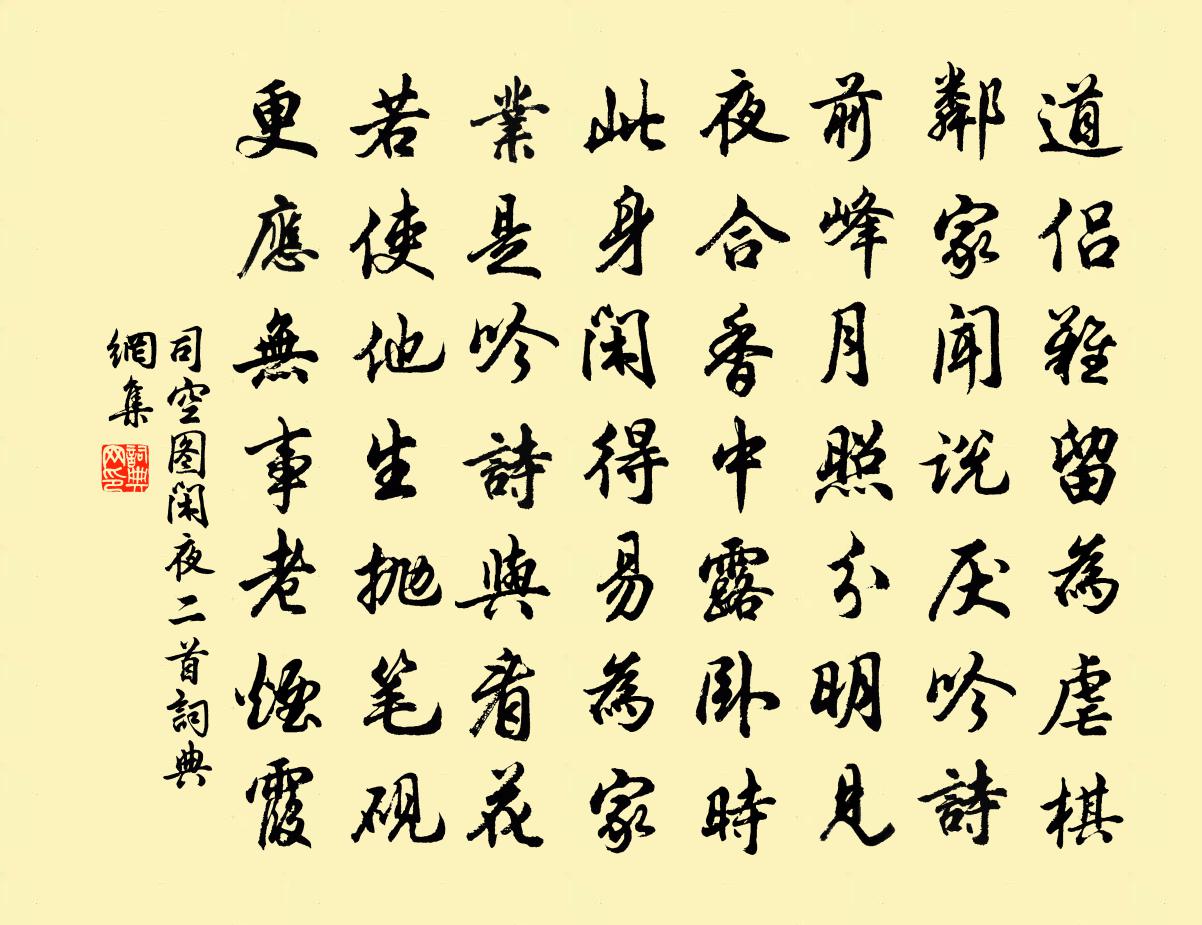 道侶難留為虐棋
鄰家聞說厌吟詩
前峰月照分明見
夜合香中露卧時
此身閑得易為家
業是吟詩與看花
若使他生抛笔硯
更應無事老煙霞
司空图閑夜二首詞典
網集
詞典
网印